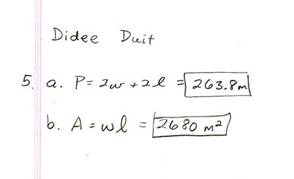 Didee Duit
5. a. P = 2w + 2l = 263.8m
b. A = wl = 2680 m²